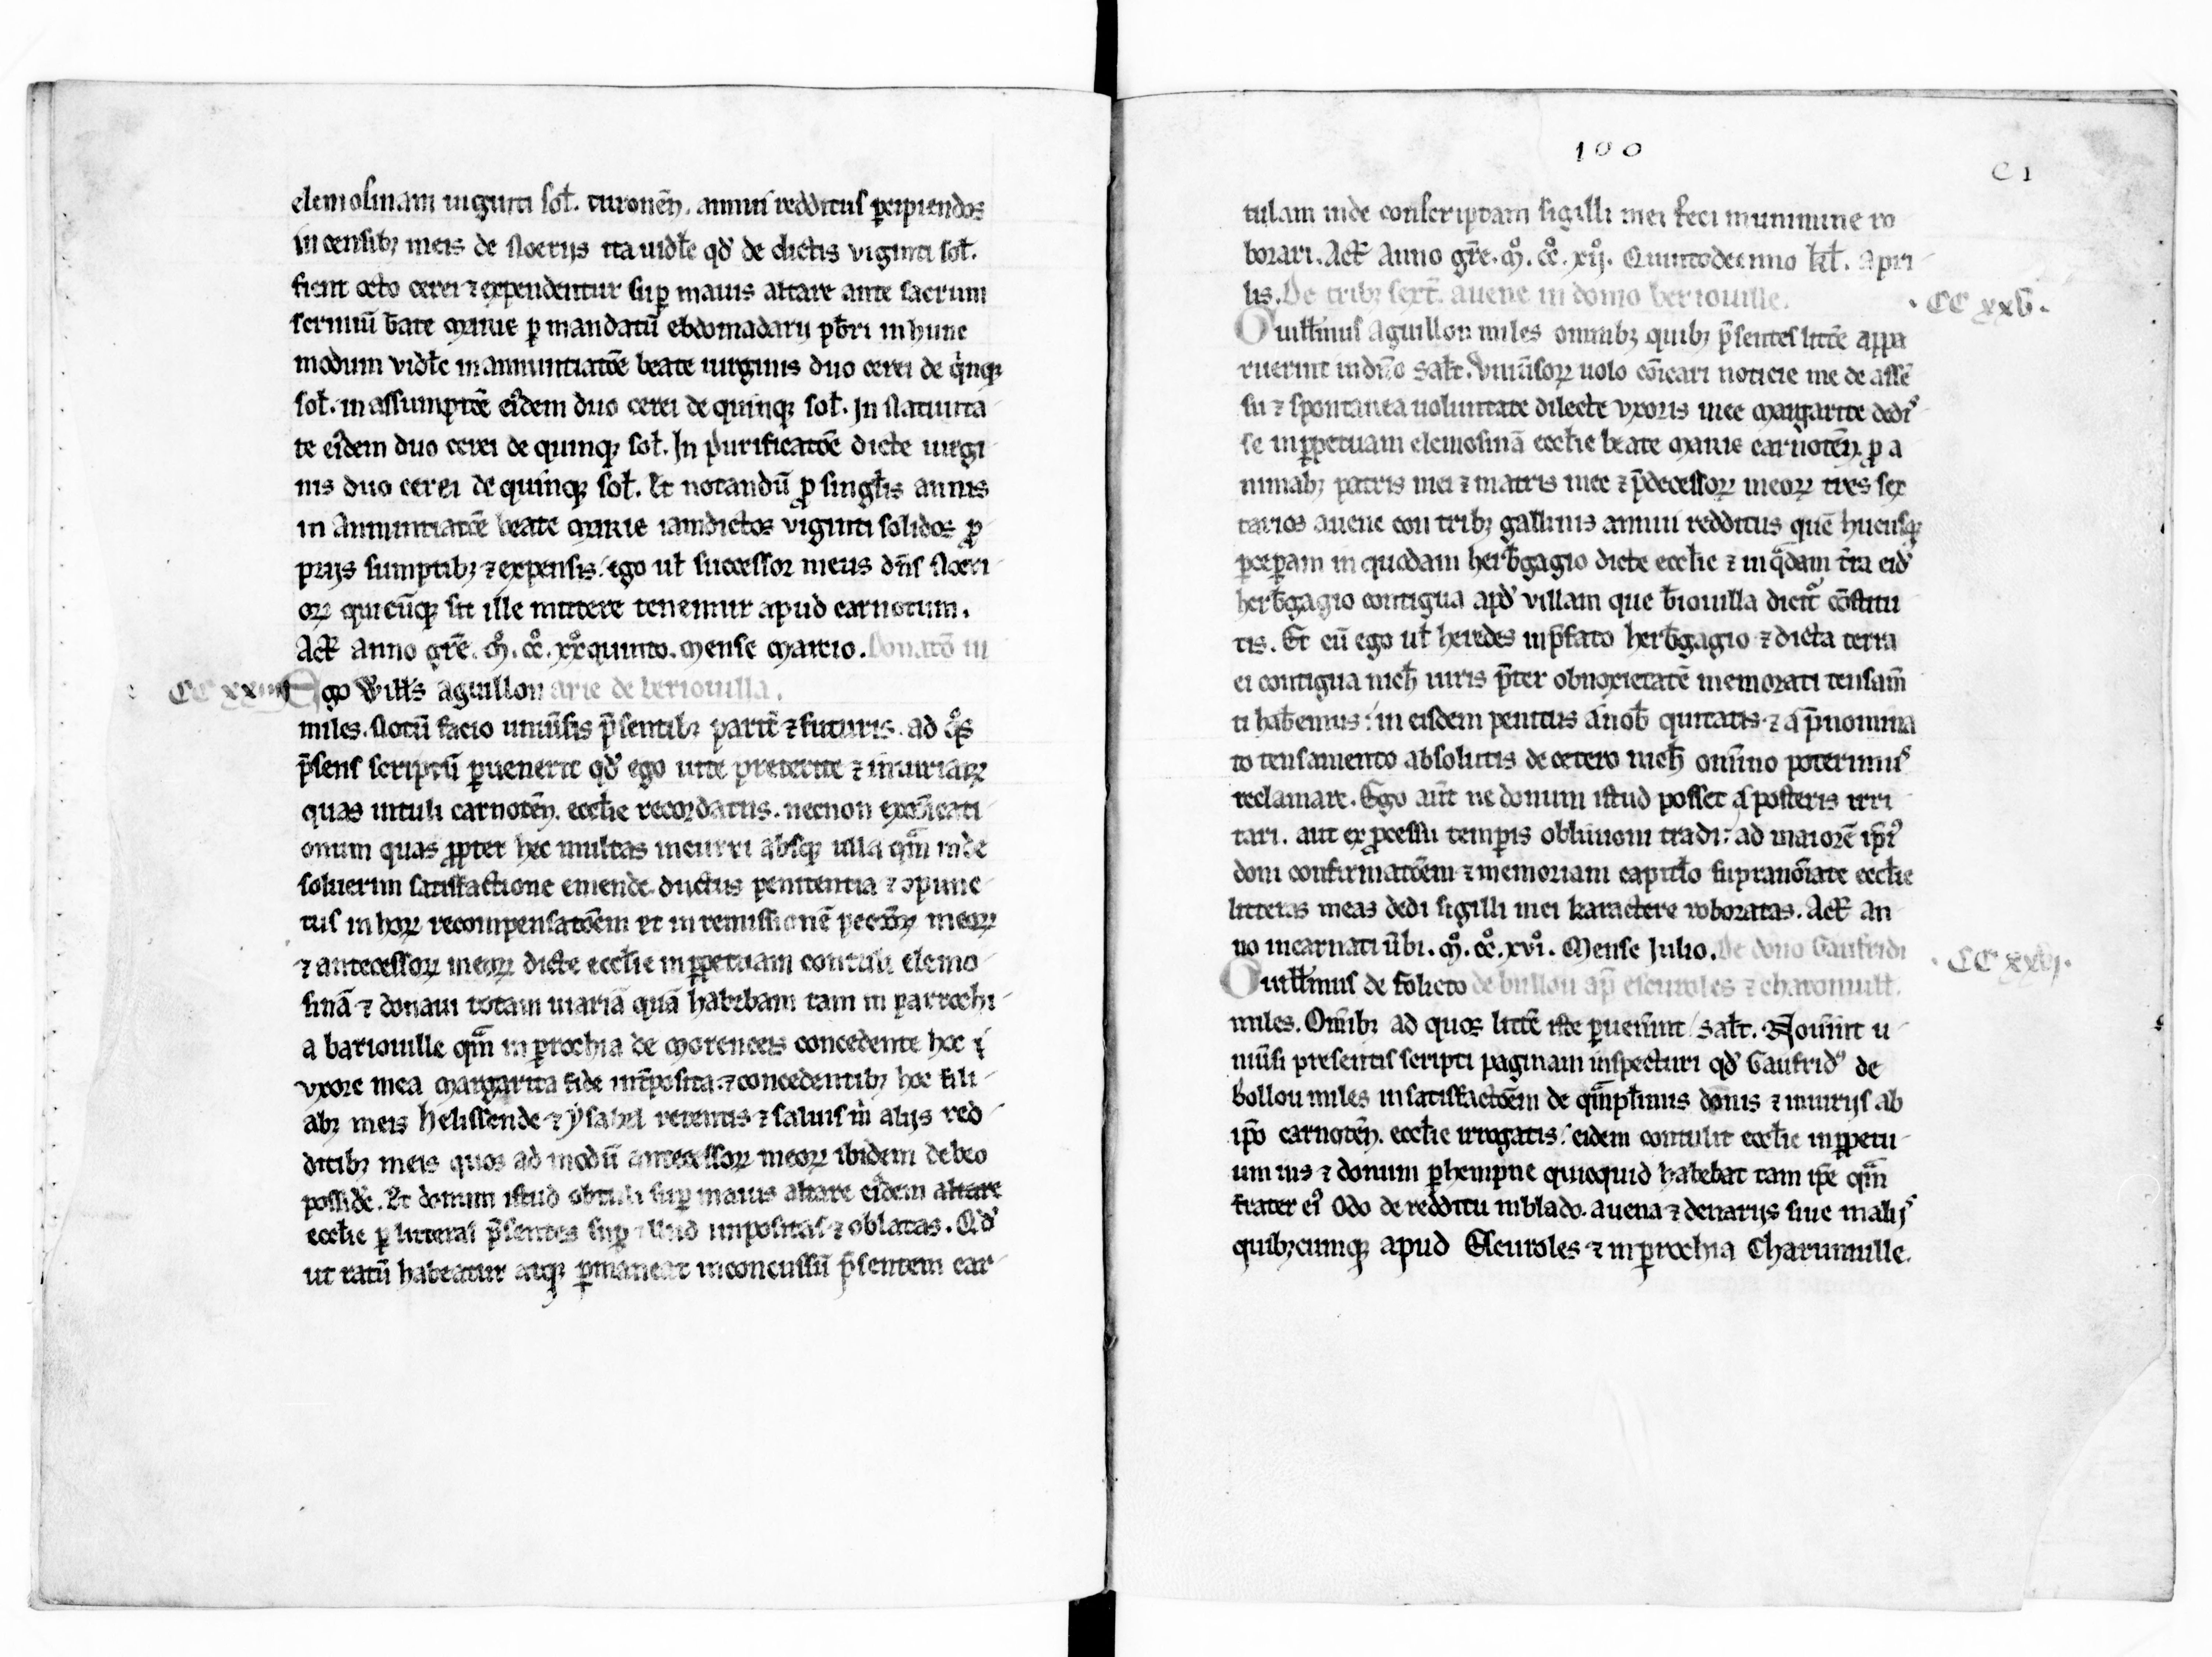 elemosinam uiginti sol̄. turonen̄. annui redditus ꝑcipiendos
in censibꝫ meis de Noerijs ita uidel̄e qđ de dictis viginti sol̄.
fient octo cerei ⁊ expendentur suꝑ maius altare ante sacrum
scriniū b̄ate Marie ꝑ mandatū ebdomadarij pb̄ri in hunc
modum videl̄e in annuntiatōe beate uirginis duo cerei de q̇nqꝫ
sol̄. in assumptōe eiꝰdem duo cerei de quinqꝫ sol̄. In Natiuita
te eiꝰdem duo cerei de quinqꝫ sol̄. In purificatōe dicte uirgi
nis duo cerei de quinqꝫ sol̄. Et notandū ꝓ singl̄is annis
in Annuntiatōe beate Marie iamdictos viginti solidos ꝓ
prijs sumptibꝫ ⁊ expensis. ego ul̄ successor meus dn̄s Noeri
oꝝ quicūqꝫ sit ille mittere tenemur apud carnotum.
Act̄ anno gr̄e. Mͦ. CCͦ. xxͦ quinto. Mense Marcio. Donatō ui
CC xxiiij Ego Will̄s aguillon arie de beriouilla.
miles. Notū facio uniūsis p̄sentibꝫ parit̄ ⁊ futuris. ad q̊s
p̄sens scriptū ꝑuenerit qđ ego uite preterite ⁊ iniuriaꝝ
quas intuli carnoten̄. eccl̄ie recordatus. necnon excōicati
onum quas ꝓpter hec multas incurri absqꝫ ulla qm̄ inde
soluerim satisfactione emende ductus penitentia ⁊ ꝯpunc
tus in hoꝝ recompensatōem et in remissionē pecc̄oꝝ meoꝝ
⁊ antecessoꝝ meoꝝ dicte eccl̄ie in ꝑpetuam contuli elemo
sinā ⁊ donaui totam uiariā quā habebam tam in parrochi
a bariouille qm̄ in ꝑrochia de Morenceis concedente hoc i
vxore mea Margarita fide int̄posita ⁊ concedentibꝫ hoc fili
abꝫ meis helissende ⁊ ysabel retentis ⁊ saluis m̄ alijs red
ditibꝫ meis quos ad modū antecessoꝝ meoꝝ ibidem debeo
possid̄e. Et donum istud obtuli suꝑ maius altare eiꝰdem altare
eccl̄ie ꝑ litteras p̄sentes suꝑ illud impositas ⁊ oblatas. Qđ
ut ratū habeatur atqꝫ ꝑmaneat inconcussū p̄sentem car
100
C I
tulam inde conscriptam sigilli mei feci munimine ro
borari. Act̄ Anno gr̄e. Mͦ. CCͦ. xijͦ. Quintodecimo kl̄. Apri
lis. De tribꝫ sext̄. auene in domo beriouille. . CC xxv.
Guill̄mus Aguillon miles omnibꝫ quibꝫ p̄sentes litt̄e appa
ruerint in dn̄o salt̄. Vniūsoꝝ uolo cōicari noticie me de assē
su ⁊ spontanea uoluntate dilecte vxoris mee Margarite dedis
se in ꝑpetuam elemosinā eccl̄ie beate Marie carnoten̄. ꝓ a
nimabꝫ patris mei ⁊ matris mee ⁊ p̄decessoꝝ meoꝝ tres sex
tarios auene con tribꝫ gallinis annui redditus quē hucusqꝫ
ꝑceꝑam in quodam herb̄gagio dicte eccl̄ie ⁊ in q̄dam t̄ra eid̄
herb̄gagio contigua apđ villam que b̄iouilla dicit̄ cōstitu
tis. Et cū ego ul̄ heredes in p̄fato herb̄gagio ⁊ dicta terra
ei contigua nich̄ iuris p̄ter obnoxietatē memorati tensam̄
ti hab̄emus: in eisdem penitus a nob̄ quitatis ⁊ a p̄nomina
to tensamento absolutis de cetero nich̄ omīno poterimus
reclamare. Ego aūt ne donum istud posset a posteris irri
tari. aut ex ꝓcessu temꝑis obliuioni tradi: ad maiorē ip̄iꝰ
doni confirmatōem ⁊ memoriam capitl̄o supranōiate eccl̄ie
litteras meas dedi sigilli mei karactere roboratas. Act̄ an
no incarnati v̄bi. Mͦ. CCͦ. xviͦ. Mense Julio. De dono Gaufridi
Guill̄mus de folieto de bullou ap̄ escuroles ⁊ charonuill̄. . CC xxvj.
miles. Om̄ibꝫ ad quos litt̄e iste ꝑuen̄int salt̄. Nou̇int u
niūsi presentis scripti paginam inspecturi qđ Gaufridꝰ de
bollou miles in satisfactōem de qm̄pl̄imis dōnis ⁊ iniurijs ab
ip̄o carnoten̄. eccl̄ie irrogatis. eidem contulit eccl̄ie in ꝑpetu
um ius ⁊ donum ꝑhempne quicquid habebat tam ip̄e qm̄
frater eiꝰ Odo de redditu in blado. auena ⁊ denarijs siue in alijs
quibꝫcumqꝫ apud Escuroles ⁊ in ꝑrochia Charunuille.